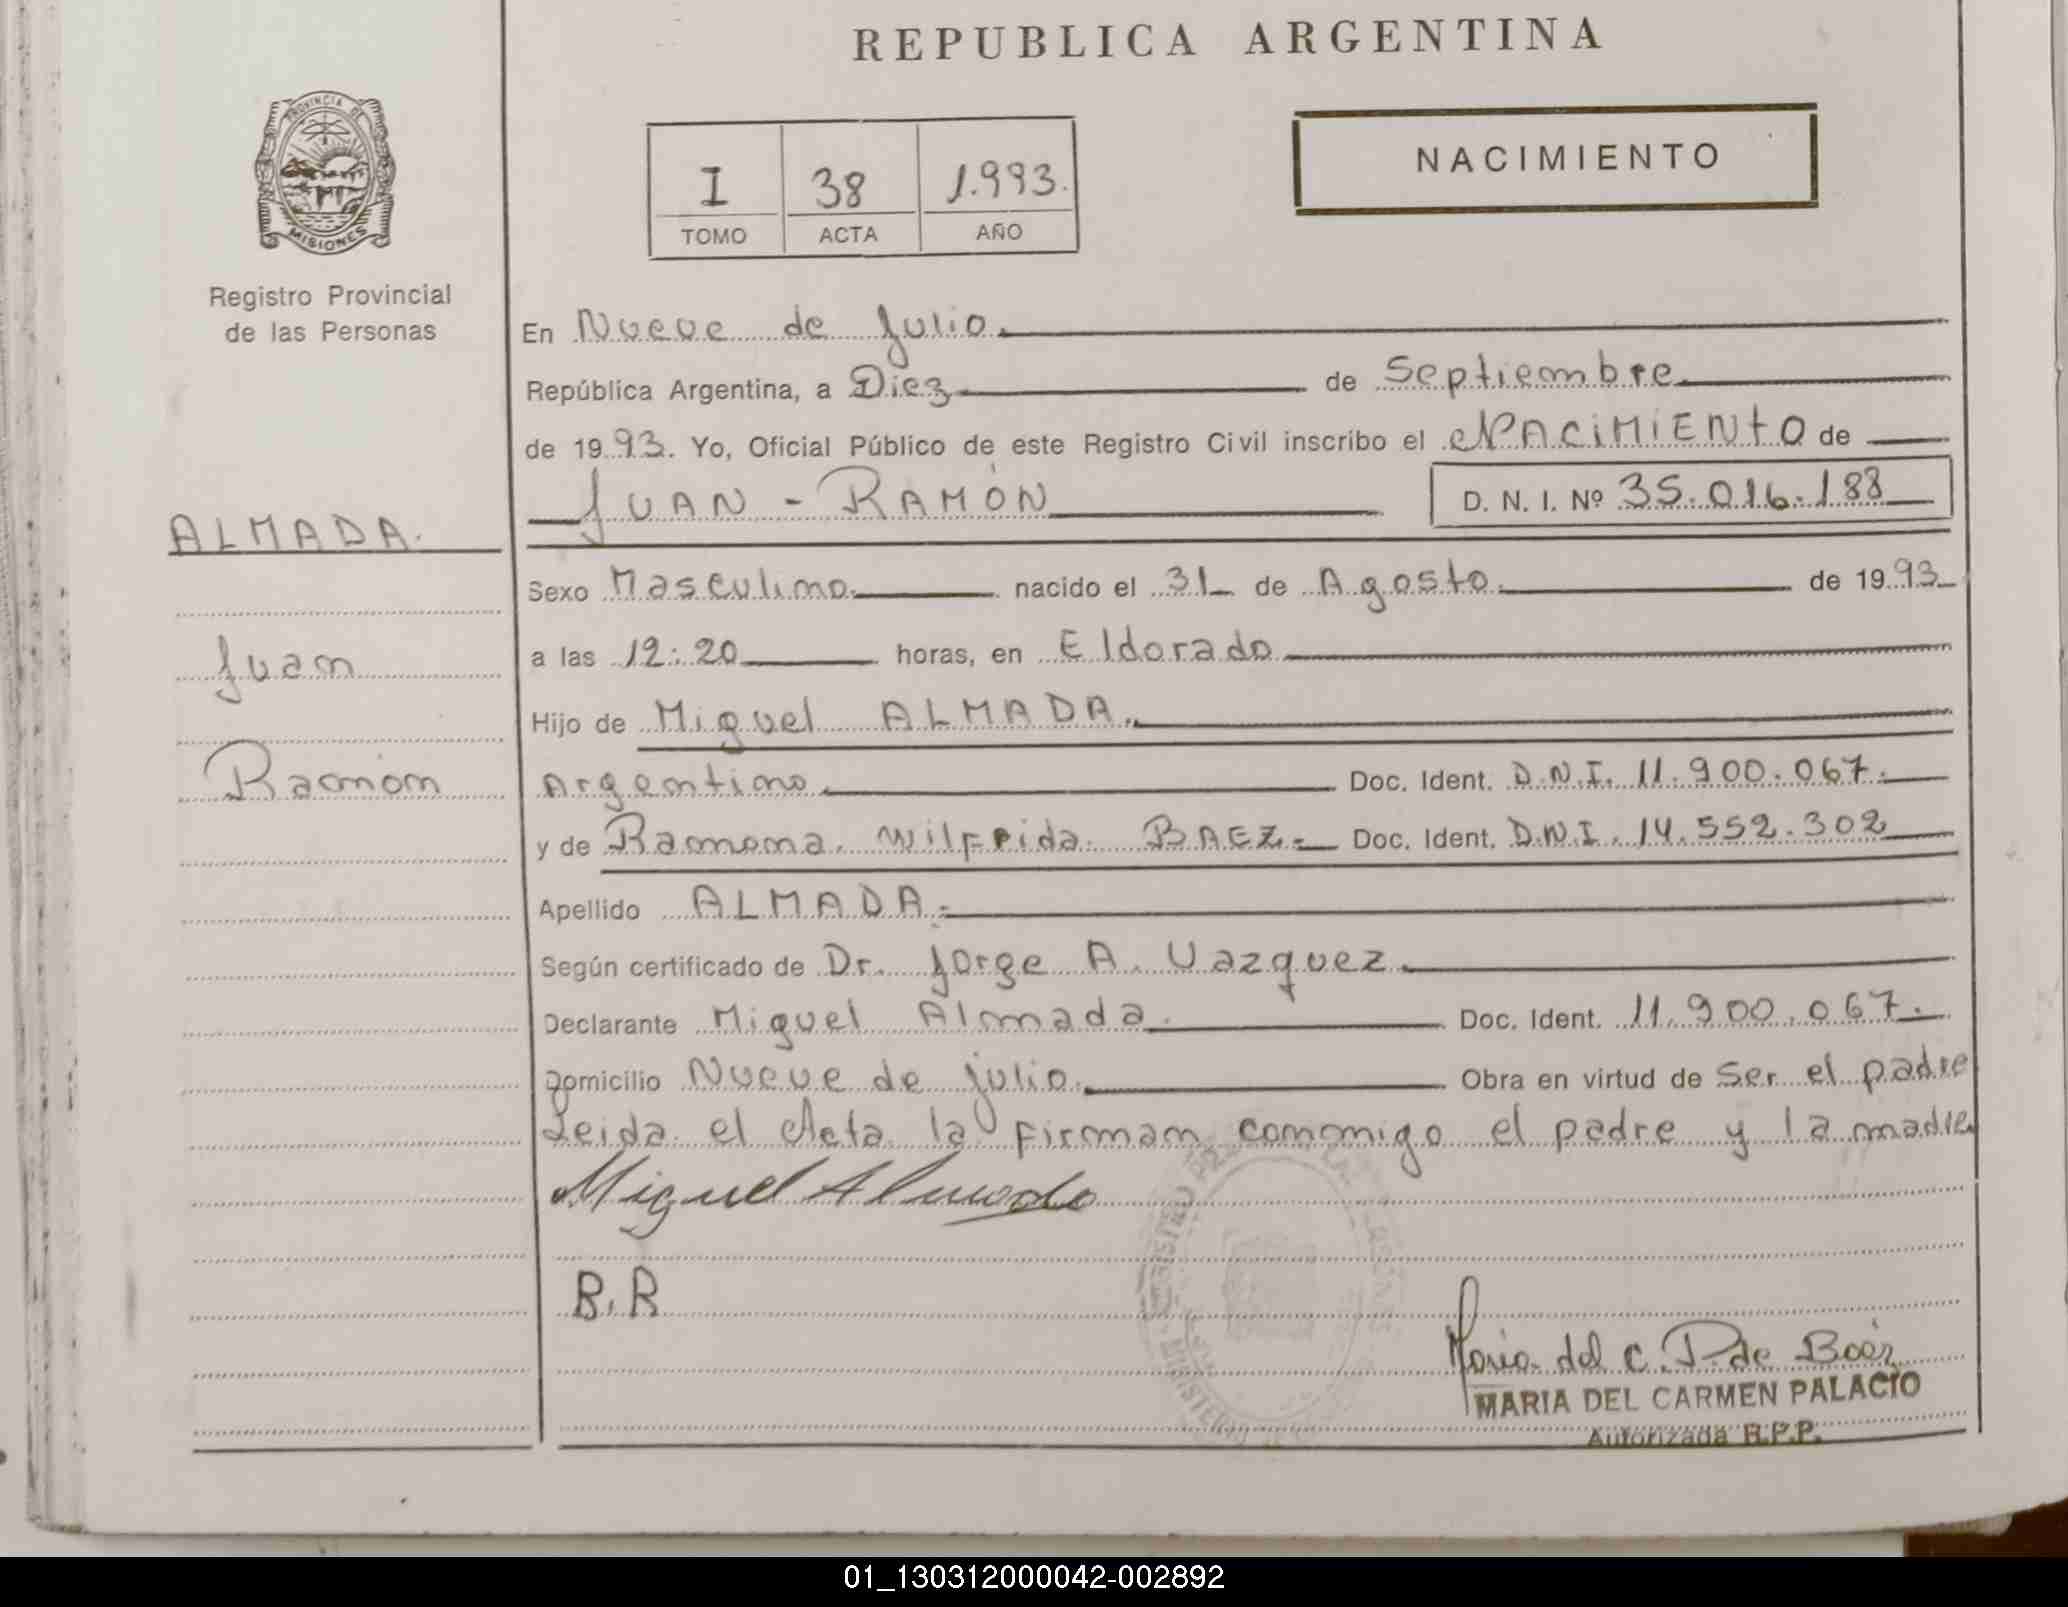 REPUBLICA ARGENTINA
PROVINCIA DE
MISIONES
Registro Provincial
de las Personas
I 38 1.993.
TOMO ACTA AÑO
NACIMIENTO
En Nueve de Julio.
República Argentina, a Diez de Septiembre
de 1993. Yo, Oficial Público de este Registro Civil inscribo el NACIMIENTO de
JUAN - RAMÓN D. N. I. Nº 35.016.188
ALMADA.
Juan
Ramón
Sexo Masculino. nacido el 31 de Agosto. de 1993
a las 12:20 horas, en Eldorado
Hijo de Miguel ALMADA.
Argentino Doc. Ident. D.N.I. 11.900.067.
y de Ramona. Wilfrida. BAEZ.- Doc. Ident. D.N.I. 14.552.302
Apellido ALMADA.-
Según certificado de Dr. Jorge A. Vazquez.
Declarante Miguel Almada. Doc. Ident. 11.900.067.
Domicilio Nueve de julio. Obra en virtud de Ser el padre
Leida el Acta la firman conmigo el padre y la madre
Miguel Almada
B.R
Maria del C. P. de Baez
MARIA DEL CARMEN PALACIO
Autorizada R.P.P.
01_130312000042-002892